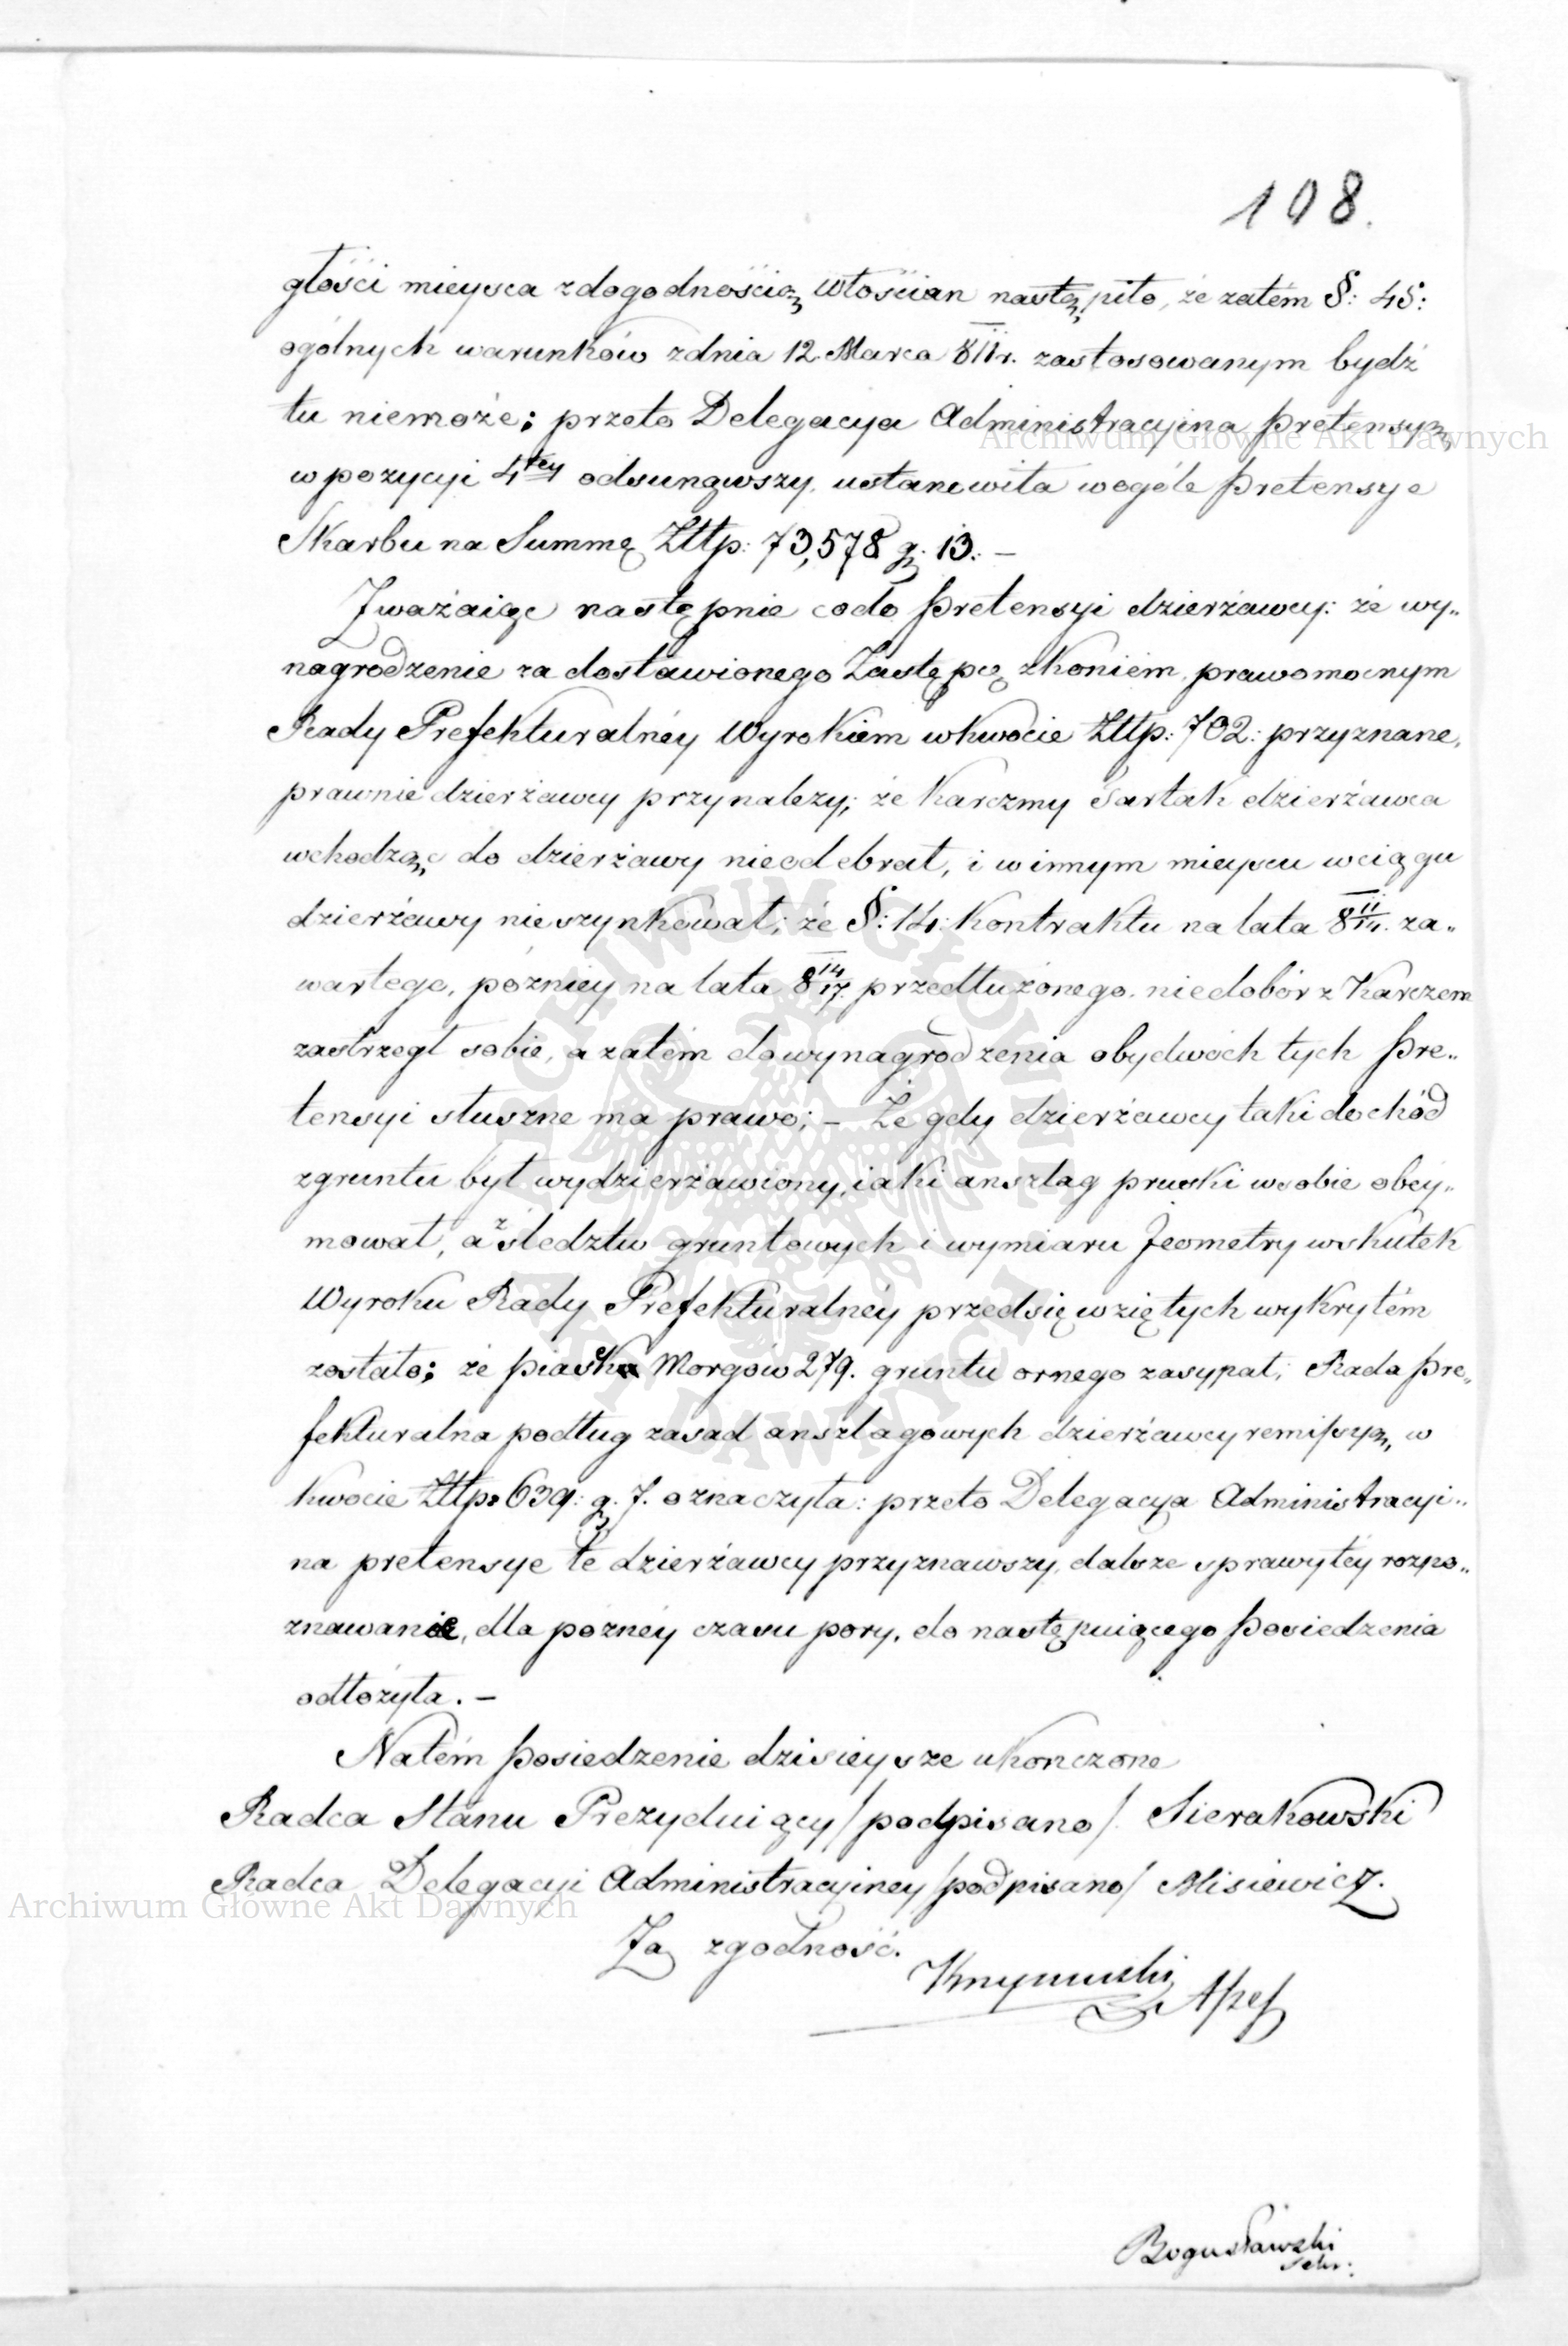 108.
głości mieysca z dogodnością Włościan nastąpiło, że zatém §: 45:
ogólnych warunków z dnia 12. Marca 811r. zastosowanym bydź
tu niemoże; przeto Delegacya Administracyina Pretensyą
w pozycyi 4tey odsunąwszy, ustanowiła wogóle Pretensye
Skarbu na Summę Złłp: 73,578 g. 13. –
Zważaiąc następnie codo Pretensyi dzierżawcy: że wy„
nagrodzenie za dostawionego Zastępcę zkoniem, prawomocnym
Rady Prefekturalnéy Wyrokiem wkwocie Złłp: 702: przyznane,
prawnie dzierżawcy przynależy; że Karczmy Sartak dzierżawca
wchodząc do dzierżawy nieodebrał, i winnym mieyscu wciągu
dzierżawy nieszynkował; że §: 14: Kontraktu na lata 8 11/14. za„
wartego, pózniey na lata 8 14/17. przedłużonego, niedobór z Karczem
zastrzegł sobie, a zatém do wynagrodzenia obydwóch tych Pre„
tensyi słuszne ma prawo; – Że gdy dzierżawcy taki dochód
zgruntu był wydzierżawiony, iaki anszlag pruski wsobie obéy„
mował, a z śledztw gruntowych i wymiaru Jeometry wskutek
Wyroku Rady Prefekturalnéy przedsięwziętych wykrytém
zostało; że piasek Morgów 279. gruntu ornego zasypał; Rada Pre„
fekturalna podług zasad anszlagowych dzierżawcy remissyą, w
kwocie Złłp: 639: g. 7. oznaczyła: przeto Delegacya Administracyi„
na pretensye te dzierżawcy przyznawszy, dalsze sprawy téy rozpo„
znawanie, dla pózney czasu pory, do następuiącego Posiedzenia
odłożyła. –
Natém Posiedzenie dzisieysze ukończone
Radca Stanu Prezyduiący /podpisano/ Sierakowski
Radca Delegacyi Administracyiney /podpisano/ Misiewicz.
Za zgodność.
Bogusławski
Sekr:
Archiwum Główne Akt Dawnych
Archiwum Główne Akt Dawnych
ARCHIWUM GŁÓWNE AKT DAWNYCH